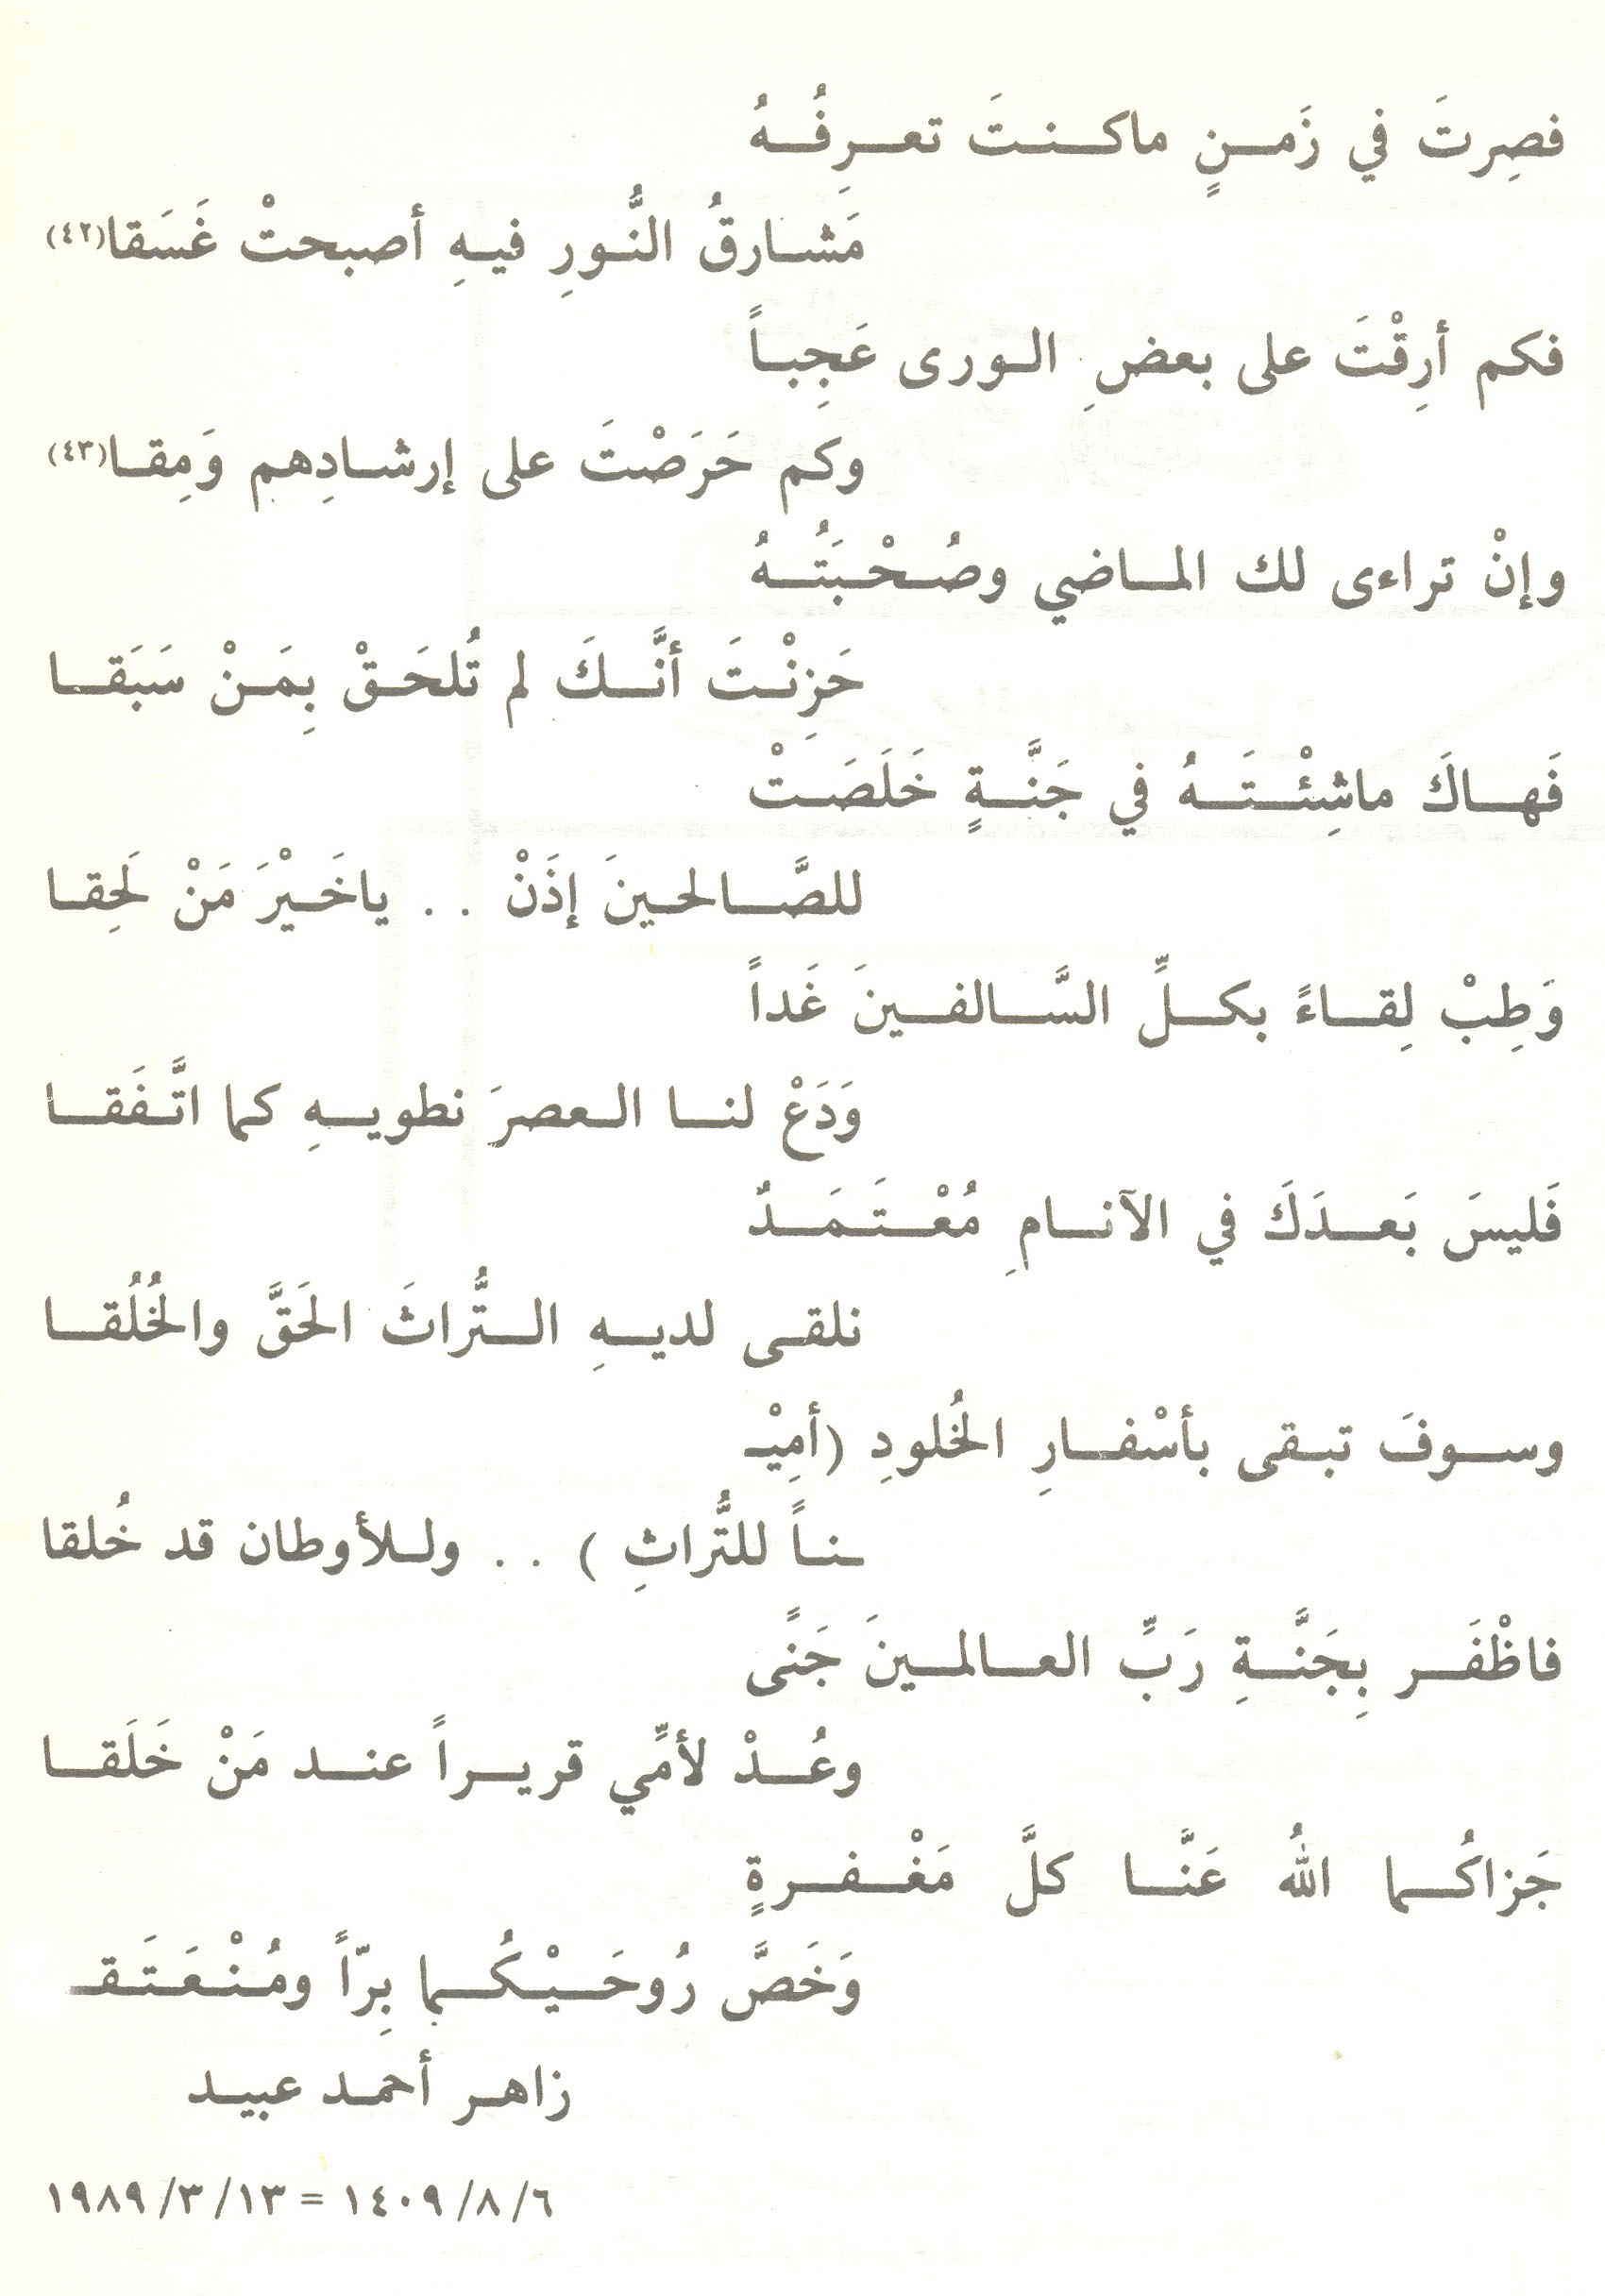 فصِرتَ في زَمنٍ ماكنتَ تعرِفُهُ
مَشارقُ النُّورِ فيهِ أصبحتْ غَسَقا(٤٢)
فكم أرِقْتَ على بعضِ الورى عَجِباً
وكم حَرَصْتَ على إرشادِهم وَمِقا(٤٣)
وإنْ تراءى لك الماضي وصُحْبَتُهُ
حَزِنْتَ أنَّكَ لم تُلحَقْ بِمَنْ سَبَقا
فَهاكَ ماشِئْتَهُ في جَنَّةٍ خَلَصَتْ
للصَّالحينَ إذَنْ . . ياخَيْرَ مَنْ لَحِقا
وَطِبْ لِقاءً بكلِّ السَّالفينَ غَداً
وَدَعْ لنا العصرَ نطويهِ كما اتَّفَقا
فَليسَ بَعدَكَ في الآنامِ مُعْتَمَدٌ
نلقى لديهِ التُّراثَ الحَقَّ والخُلُقا
وسوفَ تبقى بأسْفارِ الخُلودِ (أمِيْـ
ـناً للتُّراثِ ) . . وللأوطان قد خُلقا
فاظْفَر بِجَنَّةِ رَبِّ العالمينَ جَنًى
وعُدْ لأمِّي قريراً عند مَنْ خَلَقا
جَزاكُما اللهُ عَنَّا كلَّ مَغْفرةٍ
وَخَصَّ رُوحَيْكُما بِرّاً ومُنْعَتَقـ
زاهر أحمد عبيد
٦/٨/١٤٠٩ = ١٣/٣/١٩٨٩